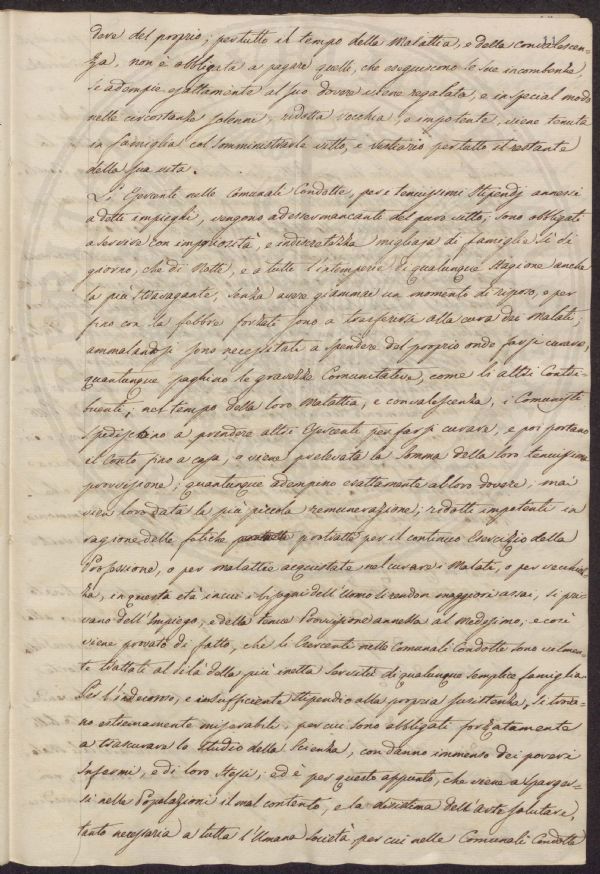 deve del proprio; per tutto il tempo della Malattia, e della convalescen-
za, non è obbligata a pagare quelli, che eseguiscono le sue incombenze,
Si adempie esattamente al suo dovere viene regalata, e in special modo
nelle circostanze solenni, ridotta vecchia, e impotente, viene tenuta
in famiglia col somministrarle vitto, e vestiario per tutto il restante
della sua vita.
Li Esercenti nelle Comunale Condotte, per i tenuissimi Stipendj annessi
a detti impieghi, vengono ad esser mancanti del puro vitto; sono obbligati
a servire con imperiosità, e indiscretezza migliaja di famiglie sì di
giorno, che di Notte, e a tutte l'intemperie di qualunque stagione anche
la più stravagante, senza avere giammai un momento di riposo, e per
fino con la febbre forzati sono a trasferirsi alla cura dei Malati;
ammalandosi sono necessitati a spendere del proprio onde farsi curare,
quantunque paghino le gravezze Comunitative, come li altri Contri-
buenti; nel tempo della loro Malattia, e convalescenza, i Comunisti
spediscono a prendere altri Esercenti per farsi curare, e poi portano
il Conto fino a casa, o viene prelevata la Somma della loro tenuissima
provvisione; quantunque adempino esattamente al loro dovere, mai
vien loro data la più piccola remunerazione; ridotti impotenti in
ragione delle fatiche portratti per il continuo Esercizio della
Professione, o per malattie acquistate nel curare i Malati, o per vecchiez-
za, in questa età in cui i bisogni dell'Uomo si rendon maggiori assai, si pri-
vano dell'Impiego, e della tenue Provisione annessa al Medesimo; e così
viene provato di fatto, che li Esercenti nelle Comunali Condotte sono vilmen-
te trattati al di là della più inetta Servitù di qualunque semplice famiglia.
Per l'indecoroso, e insufficiente stipendio alla propria sussistenza, si trova-
no estremamente miserabili, per cui sono obbligati forzatamente
a trascurare lo Studio della Scienza, con danno immenso dei poveri
Infermi, e di loro stessi; ed è per questo appunto, che viene a spargер-
si nelle Popolazioni il mal contento, e la disistima dell'Arte salutare,
tanto necessaria a tutta l'Umana Società, per cui nelle Comunali Condotte